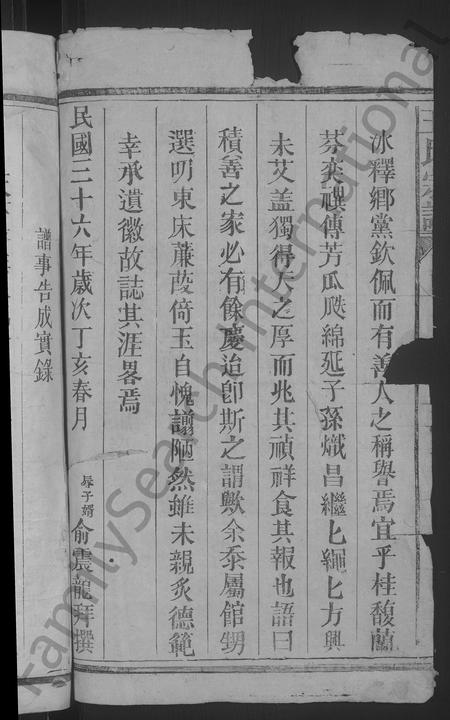 王氏宗譜
冰釋鄉黨欽佩而有善人之稱譽焉宜乎桂馥蘭
芬奕禩傳芳瓜瓞綿延子孫熾昌繼匕繩匕方興
未艾盖獨得天之厚而兆其禎祥食其報也語曰
積善之家必有餘慶迨卽斯之謂歟余忝屬館甥
選叨東床蒹葭倚玉自愧謭陋然雖未親炙德範
幸承遺徽故誌其涯畧焉
民國三十六年歲次丁亥春月
辱子婿俞震龍拜撰
譜事告成實錄
FamilySearch International